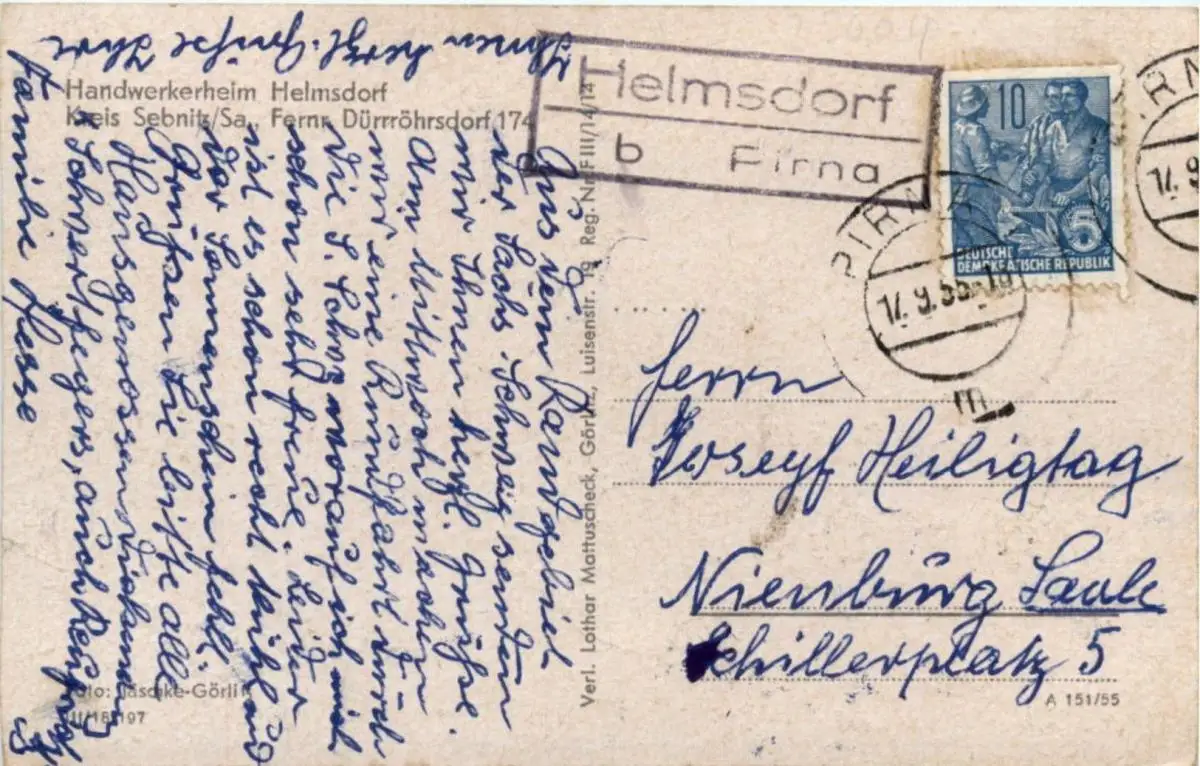 Handwerkerheim Helmsdorf
Kreis Sebnitz/Sa., Fernr. Dürrröhrsdorf 174
Helmsdorf
b Pirna
10
5
DEUTSCHE
DEMOKRATISCHE REPUBLIK
PIRNA
17.9.55-10
m
PIRNA
17.9
Aus dem Randgebiet
der Sächs. Schweiz senden
wir Ihnen herzl. Grüße.
Am Mittwoch machen
wir eine Rundfahrt durch
die S. Schw. worauf ich mich
schon sehr freue. Leider
ist es schon recht kühl und
der Sonnenschein fehlt.
Grüßen Sie bitte alle
Hausgenossen
Schwertfegers, auch
Familie Hesse
Ihnen herzl. Grüße Ihre
Verl. Lothar Mattuscheck, Görlitz, Luisenstr. 19 Reg. Nr. F III/14/14
Herrn
Joseyf Heiligtag
Nienburg Saale
Schillerplatz 5
Foto: Jäschke-Görlitz
III/18/197
A 151/55